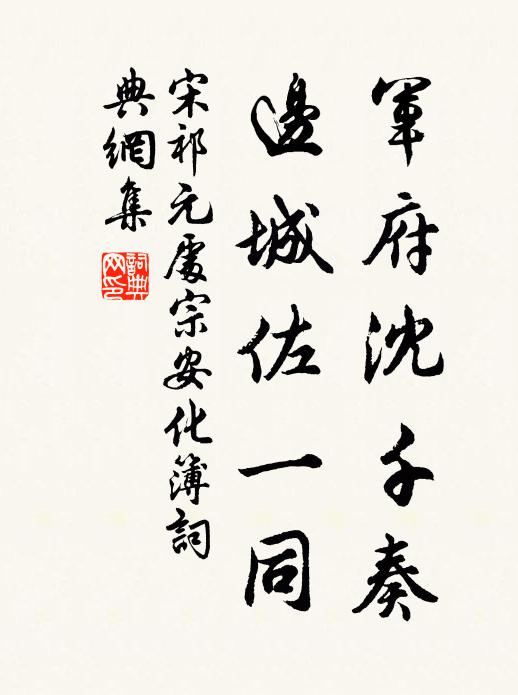 軍府沈千奏
邊城佐一同
宋祁元處宗安化簿詞
典網集
詞典網印